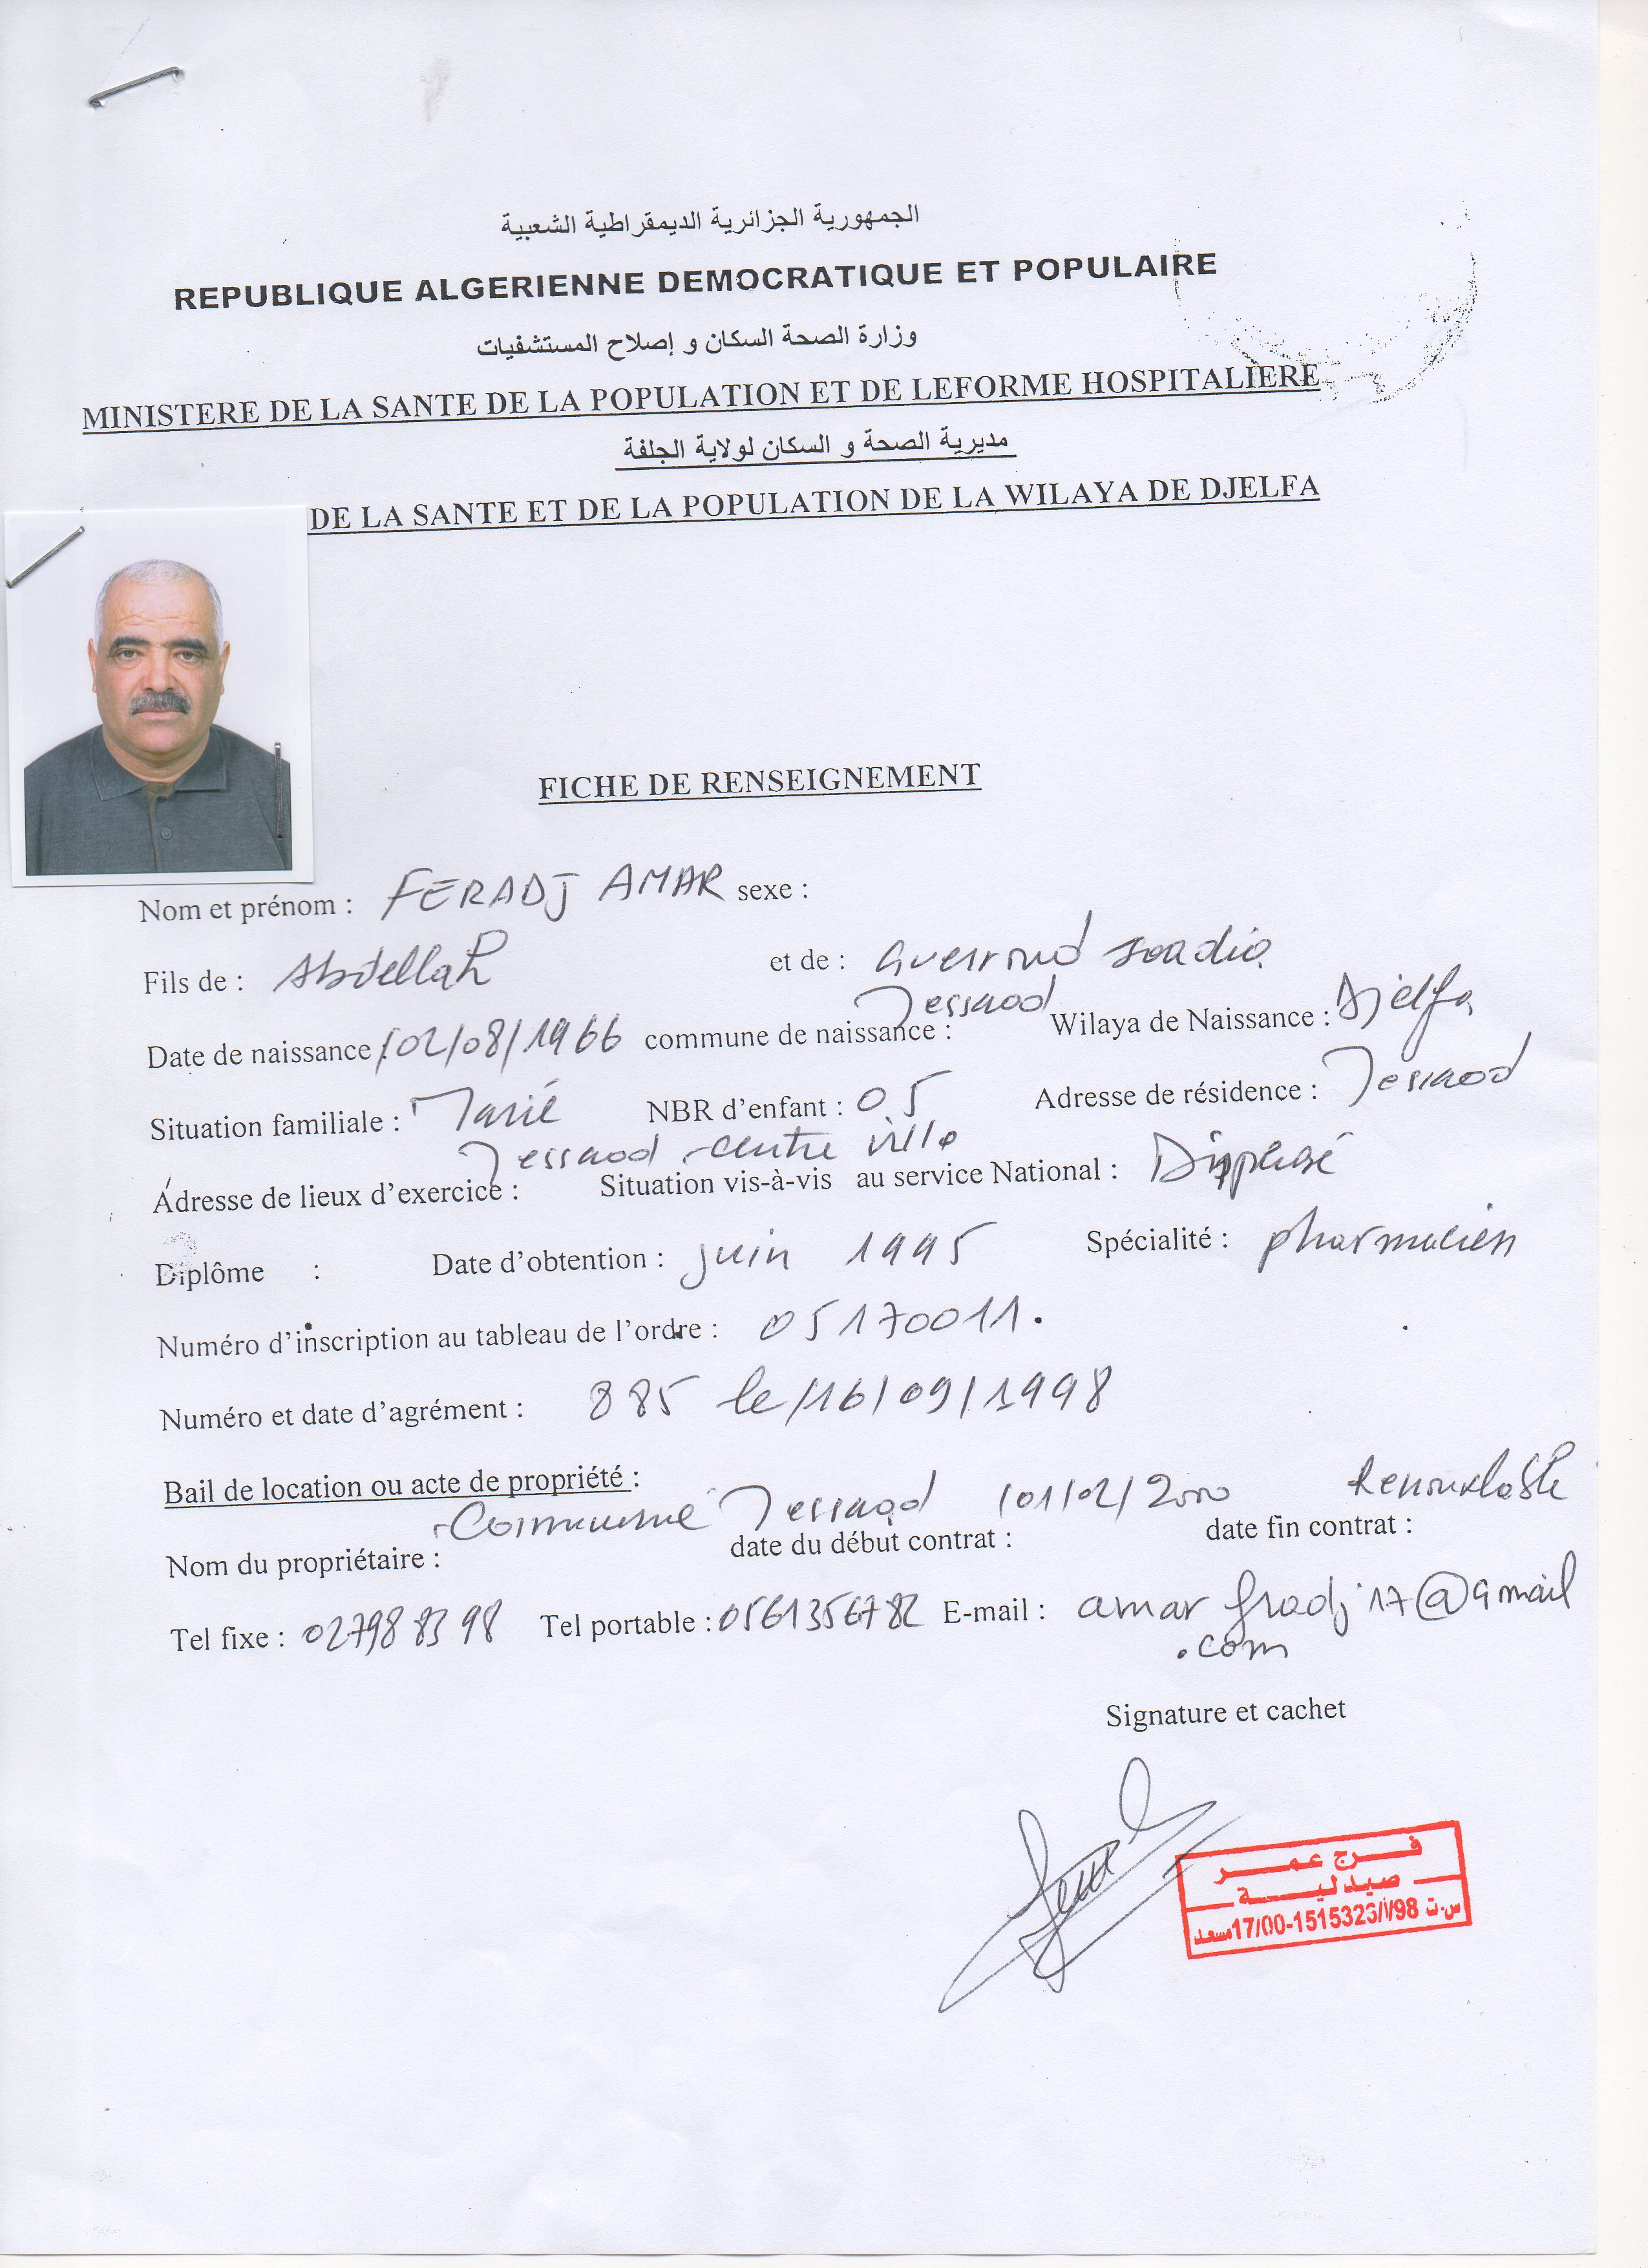 الجمهورية الجزائرية الديمقراطية الشعبية
REPUBLIQUE ALGERIENNE DEMOCRATIQUE ET POPULAIRE
وزارة الصحة السكان و إصلاح المستشفيات
MINISTERE DE LA SANTE DE LA POPULATION ET DE LEFORME HOSPITALIERE
مديرية الصحة و السكان لولاية الجلفة
DE LA SANTE ET DE LA POPULATION DE LA WILAYA DE DJELFA
FICHE DE RENSEIGNEMENT
Nom et prénom : FERADJ AMAR sexe :
Fils de : Abdellah et de : Guerroud Saadia
Date de naissance : 02/08/1966 commune de naissance : Messaad Wilaya de Naissance : Djelfa
Situation familiale : Marié NBR d'enfant : 05 Adresse de résidence : Messaad
Adresse de lieux d'exercice : Messaad centre ville Situation vis-à-vis au service National : Dispensé
Diplôme : Date d'obtention : juin 1995 Spécialité : pharmacien
Numéro d'inscription au tableau de l'ordre : 05170011.
Numéro et date d'agrément : 885 le/16/09/1998
Bail de location ou acte de propriété :
Nom du propriétaire : Commune Messaad date du début contrat : 01/02/2000 date fin contrat : Renouvelable
Tel fixe : 02798 83 98 Tel portable : 0561356782 E-mail : amar fradj 17@gmail
.com
Signature et cachet
فرج عمر
صيدلية
س.ت 98/أ/1515323-17/00 مسعد